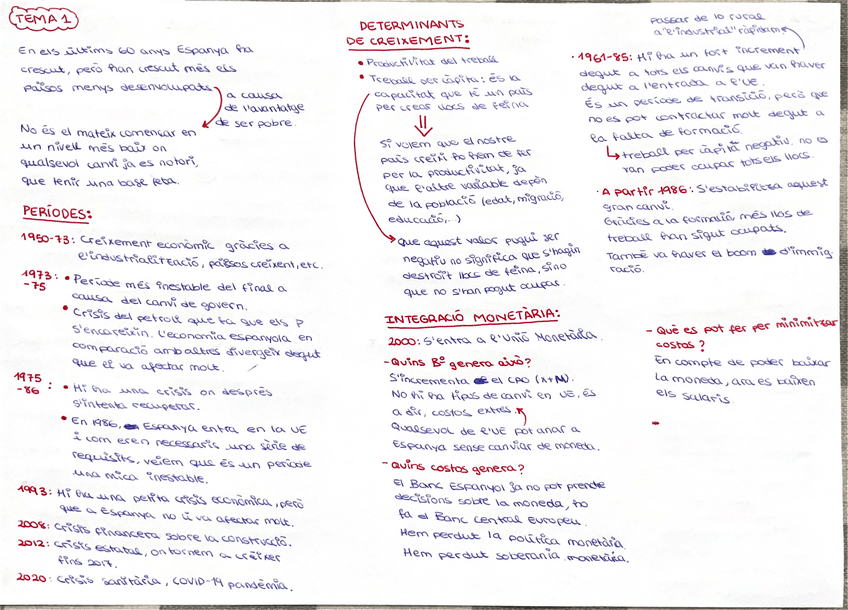 TEMA 1
En els últims 60 anys Espanya ha
crescut, però han crescut més els
països menys desenvolupats
a causa
de l'avantatge
de ser pobre.
No és el mateix començar en
un nivell més baix on
qualsevol canvi ja es notori,
que tenir una base feta.
PERÍODES:
1950-73: Creixement econòmic gràcies a
l'industrialització, països creixent, etc.
1973-75: • Període més inestable del final a
causa del canvi de govern.
• Crisis del petroli que fa que els P
s'encareixin. L'economia espanyola en
comparació amb altres divergeix degut
que el va afectar molt.
1975-86: • Hi ha una crisis on després
s'intenta recuperar.
• En 1986, Espanya entra en la UE
i com eren necessaris una sèrie de
requisits, veiem que és un període
una mica inestable.
1993: Hi ha una petita crisis econòmica, però
que a Espanya no li va afectar molt.
2008: Crisis financera sobre la construcció.
2012: Crisis estatal, on tornem a créixer
fins 2017.
2020: Crisis sanitària, COVID-19 pandèmia.
DETERMINANTS
DE CREIXEMENT:
• Productivitat del treball
• Treball per càpita: és la
capacitat que té un país
per crear llocs de feina
Si volem que el nostre
país creixi ho hem de fer
per la productivitat, ja
que l'altre variable depèn
de la població (edat, migració,
educació,..)
Que aquest valor pugui ser
negatiu no significa que s'hagin
destruït llocs de feina, sino
que no s'han pogut ocupar.
passar de lo rural
a "l'industrial" ràpidament
• 1961-85: Hi ha un fort increment
degut a tots els canvis que van haver
degut a l'entrada a l'UE.
És un període de transició, però que
no es pot contractar molt degut a
la falta de formació.
treball per càpita negatiu. no es
van poder ocupar tots els llocs.
• A partir 1986: S'estabilitza aquest
gran canvi.
Gràcies a la formació, més llocs de
treball han sigut ocupats.
També va haver el boom d'immig-
ració.
INTEGRACIÓ MONETÀRIA:
2000: S'entra a l'Unió Monetària.
- Quins Bº genera això?
S'incrementa el CPO (X+M).
No hi ha tipus de canvi en UE, és
a dir, costos extres.
Qualsevol de l'UE pot anar a
Espanya sense canviar de moneda.
- Quins costos genera?
El Banc Espanyol ja no pot prendre
decisions sobre la moneda, ho
fa el Banc Central Europeu.
Hem perdut la política monetària.
Hem perdut soberania monetària.
- Què es pot fer per minimitzar
costos?
En compte de poder baixar
la moneda, ara es baixen
els salaris.